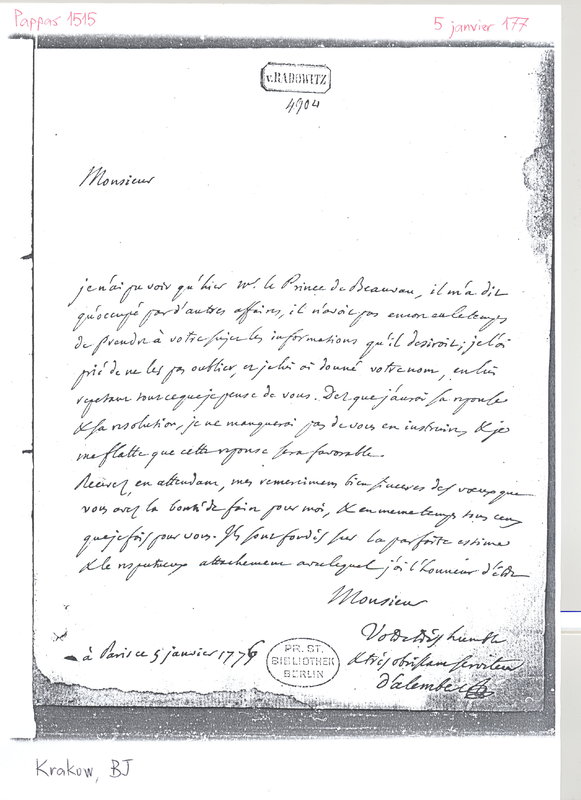 Pappas 1515
5 janvier 177
v. RADOWITZ
4904
Monsieur
je n'ai pu voir qu'hier mr. le Prince de Beauvau, il m'a dit
qu'occupé par d'autres affaires, il n'avoit pas encore eu le temps
de prendre à votre sujet les informations qu'il desiroit; je l'ai
prié de ne les pas oublier, et je lui ai donné votre nom, en lui
repetant tout ce que je pense de vous. Dès que j'aurai sa reponse
& sa resolution, je ne manquerai pas de vous en instruire, & je
me flatte que cette reponse sera favorable.
Recevez, en attendant, mes remercimens bien sinceres des vœux que
vous avez la bonté de faire pour moi, & en meme temps tous ceux
que je fais pour vous. Ils sont fondés sur la parfaite estime
& le respectueux attachement avec lequel j'ai l'honneur d'être
Monsieur
Votre très humble
à Paris ce 5 janvier 1776
& très obeissant serviteur
d'alembert
PR. ST.
BIBLIOTHEK
BERLIN
Krakow, BJ